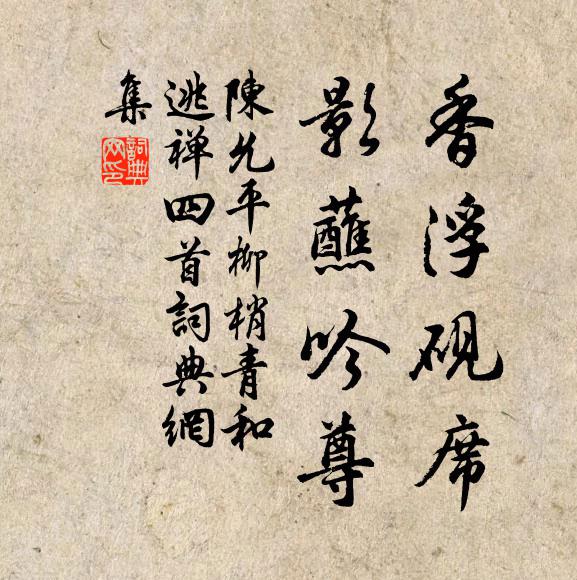 香浮砚席
影蘸吟尊
陳允平柳梢青和
逃禅四首詞典網
集
詞典網印